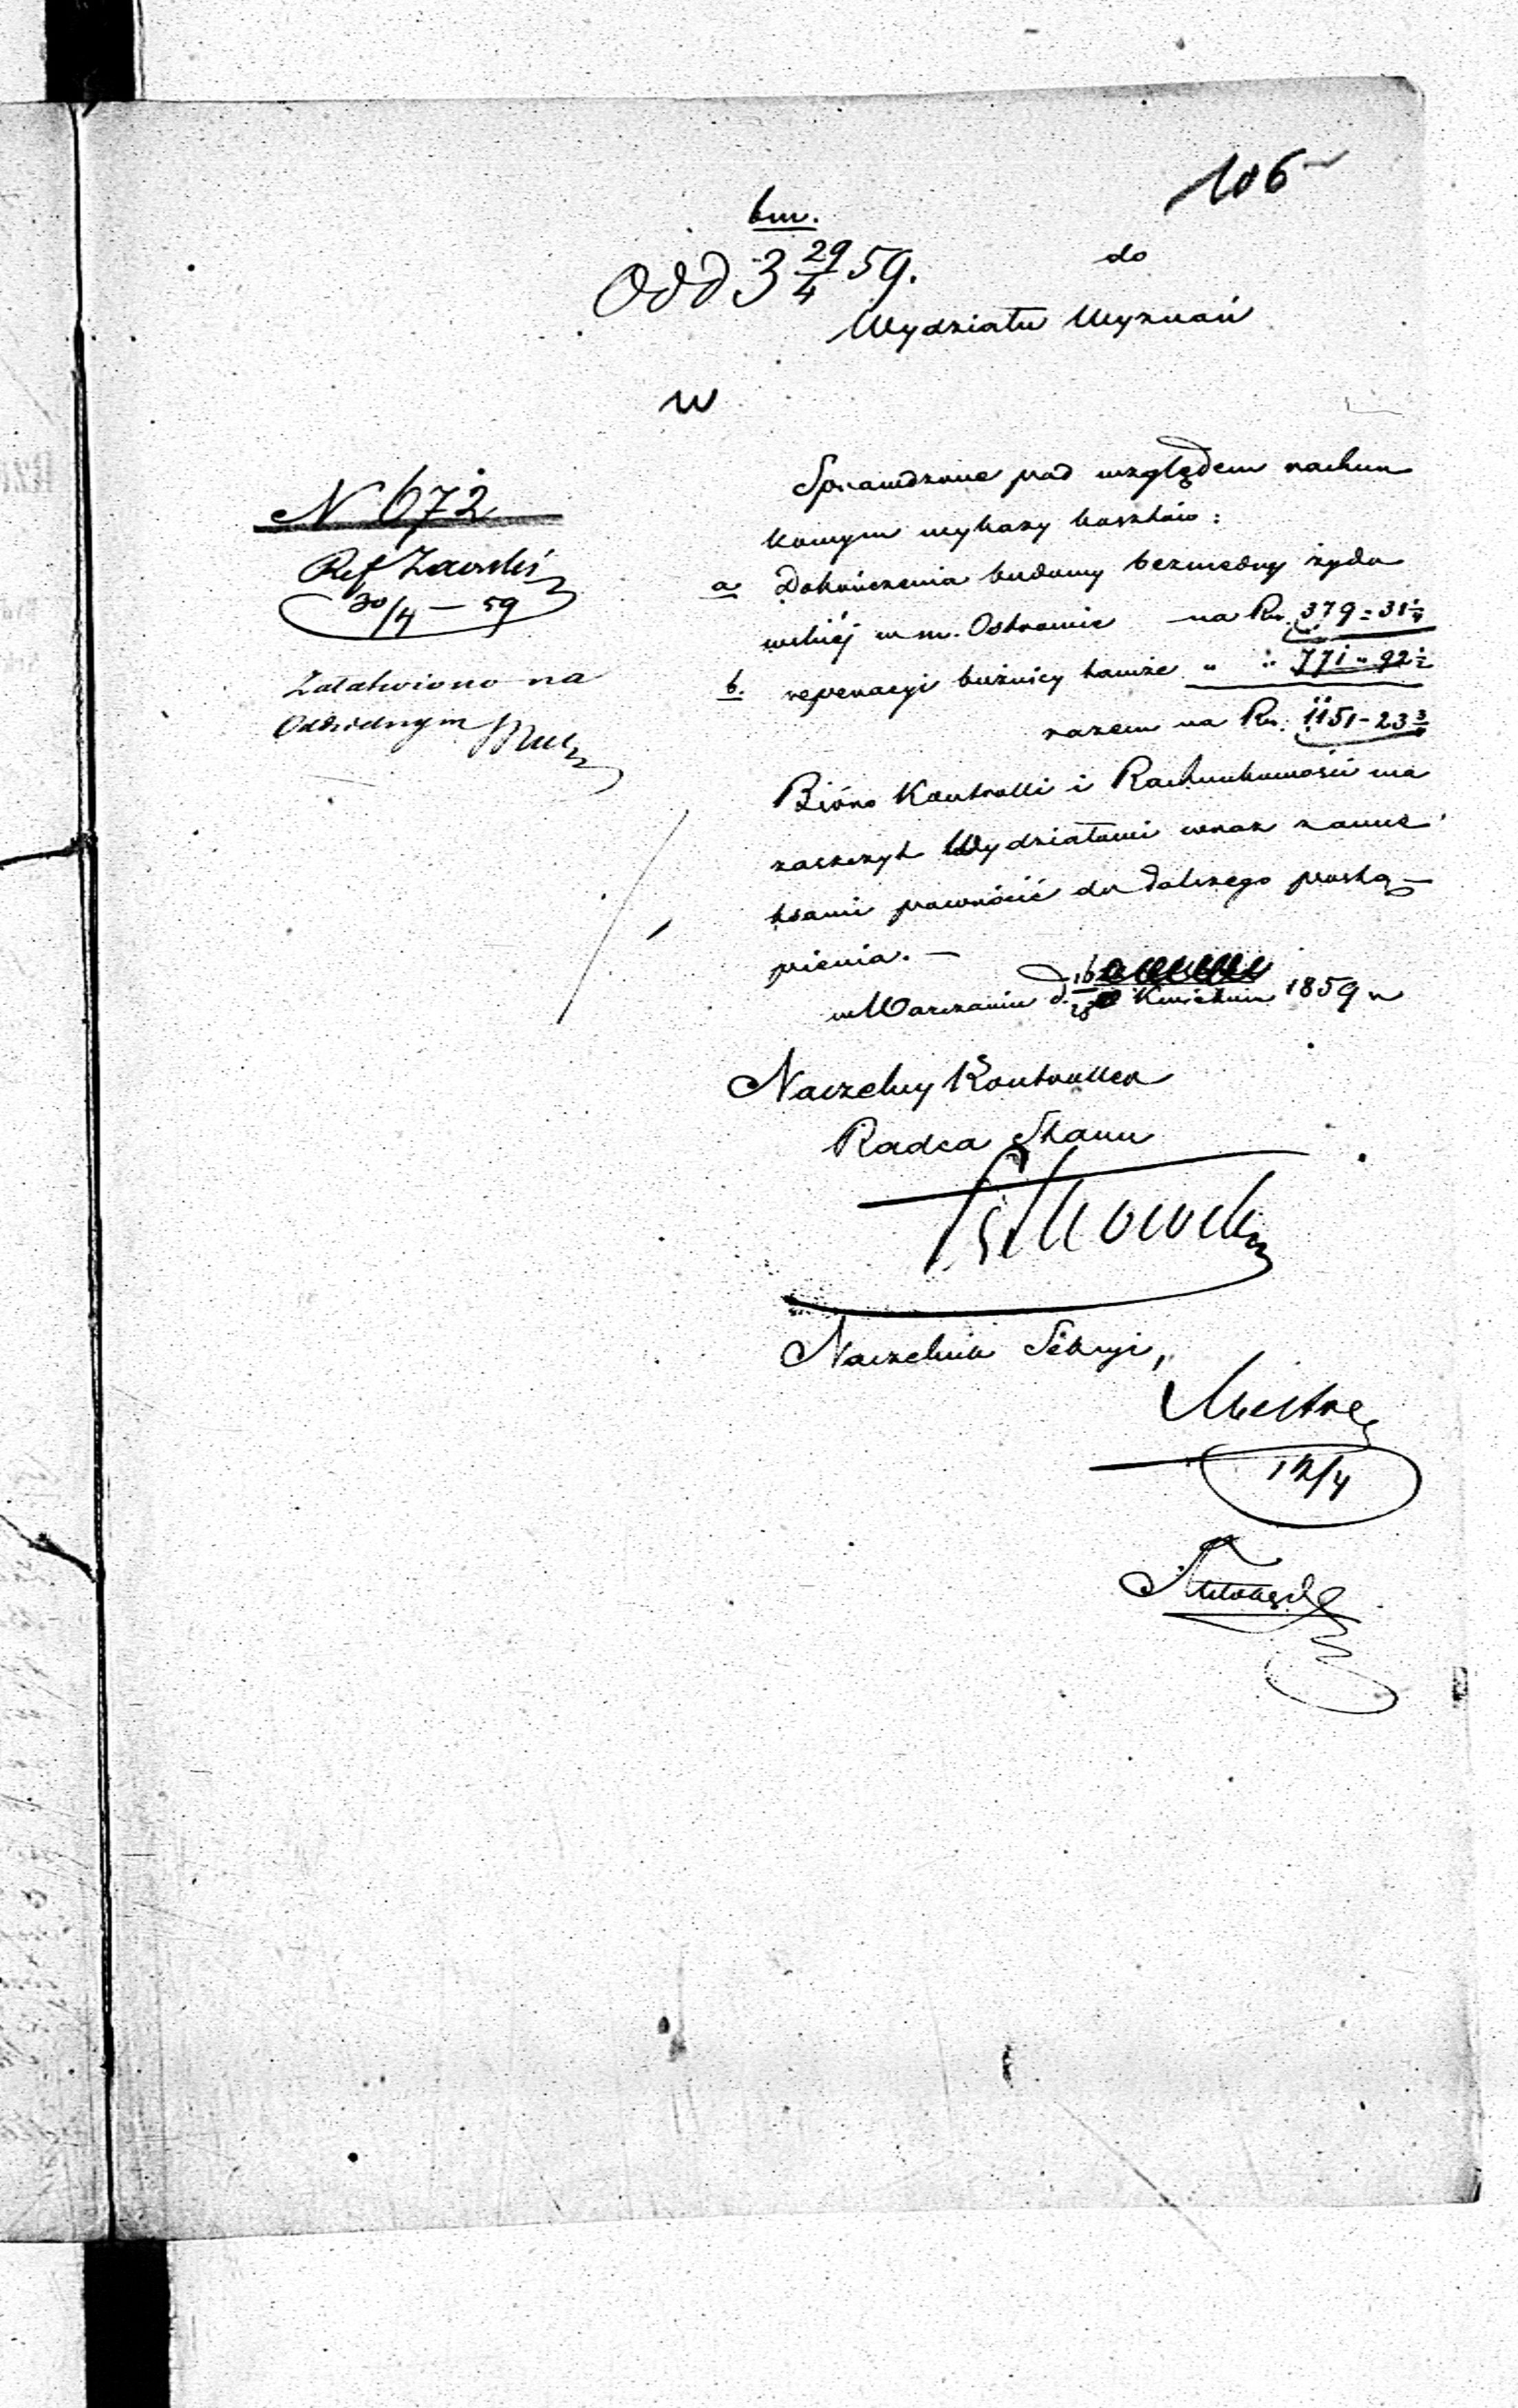 106
bm.
Odd 3 29/4 59.
do
Wydziału Wyznań
w
N 672
30/4 – 59
Załatwiono na
Oddzielnym
Sprawdzone pod względem rachun
kowym wykazy kosztów:
a Dokończenia budowy bezniczny żydo
wskiéj w m. Ostrowie na Rs. 379 = 31 1/4
b. reperacyi bużnicy tamże " " 771 " 92 1/2
razem na Rs. 1151 - 23 3/4
Bióro Kontrolli i Rachunkowości ma
zaszczyt Wydziałowi wraz z anne
ksami powrócić do dalszego postą-
pienia. —
w Warszawie d. 16/28 Kwietnia 1859 r
Naczelny Kontroller
Radca Stanu
Naczelnik Sekcyi,
12/4